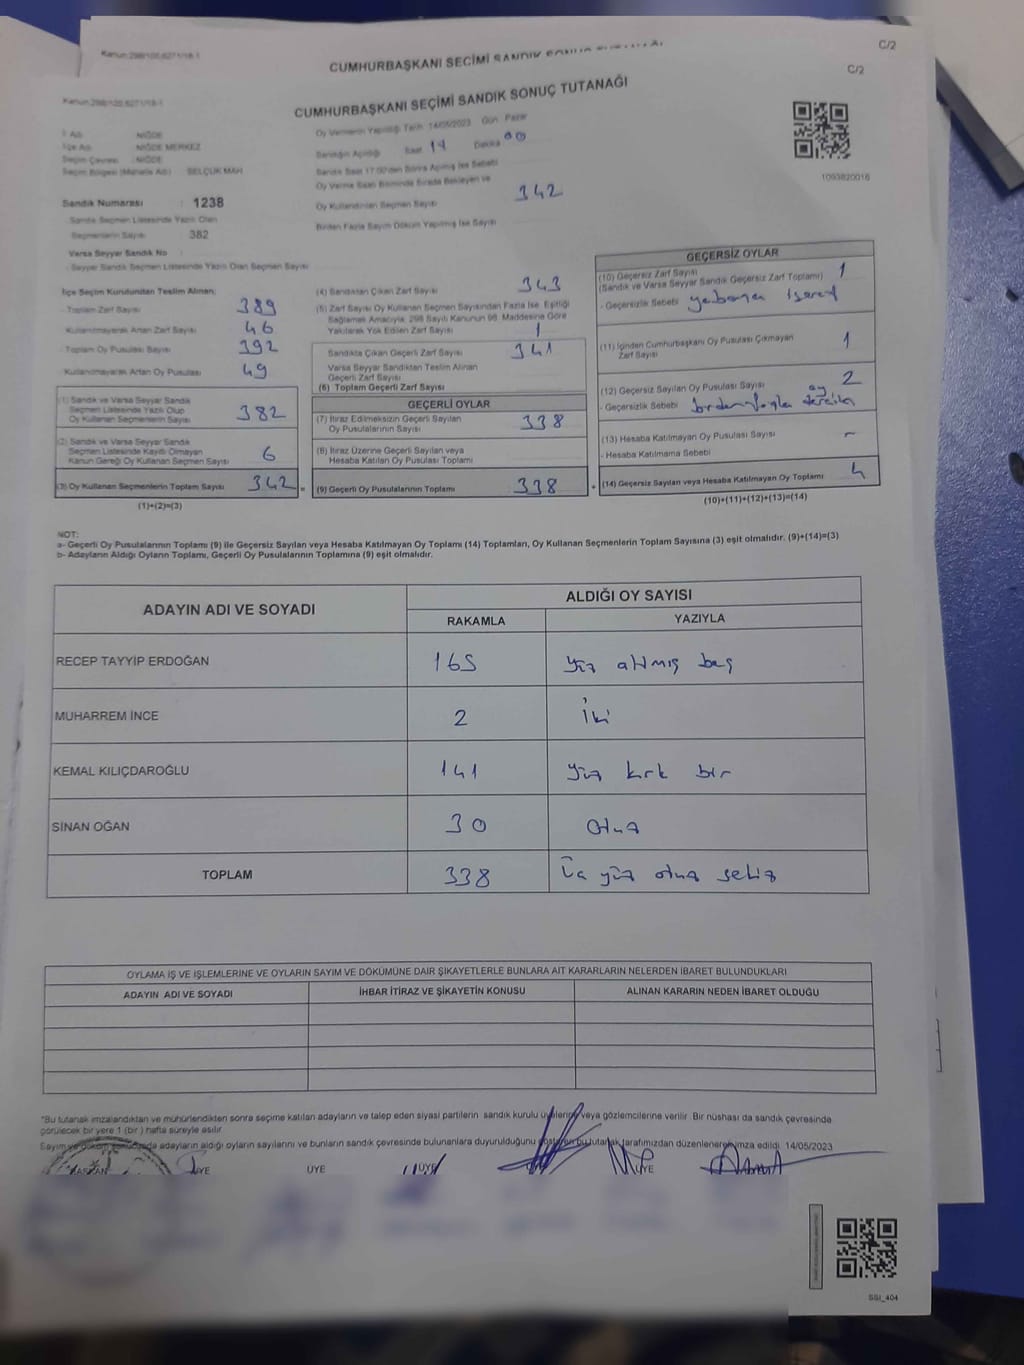 Kanun:298/105,6271/18-1
CUMHURBAŞKANI SEÇİMİ SANDIK SONUÇ TUTANAĞI
C/2
C/2
Kanun:298/105,6271/18-1
CUMHURBAŞKANI SEÇİMİ SANDIK SONUÇ TUTANAĞI
İl Adı : NİĞDE
İlçe Adı : NİĞDE MERKEZ
Seçim Çevresi : NİĞDE
Seçim Bölgesi (Mahalle Adı) : SELÇUK MAH
Oy Vermenin Yapıldığı Tarih 14/05/2023 Gün Pazar
Sandığın Açıldığı Saat 17 Dakika 00
Sandık Saat 17:00'den Sonra Açılmış İse Sebebi
Oy Verme Saati Bitiminde Sırada Bekleyen ve
Oy Kullandırılan Seçmen Sayısı 342
Birden Fazla Sayım Döküm Yapılmış İse Sayısı
1093820016
Sandık Numarası : 1238
Sandık Seçmen Listesinde Yazılı Olan
Seçmenlerin Sayısı 382
Varsa Seyyar Sandık No :
- Seyyar Sandık Seçmen Listesinde Yazılı Olan Seçmen Sayısı
İlçe Seçim Kurulundan Teslim Alınan;
- Toplam Zarf Sayısı 389
- Kullanılmayarak Artan Zarf Sayısı 46
- Toplam Oy Pusulası Sayısı 392
- Kullanılmayarak Artan Oy Pusulası 49
(1) Sandık ve Varsa Seyyar Sandık
Seçmen Listesinde Yazılı Olup
Oy Kullanan Seçmenlerin Sayısı 382
(2) Sandık ve Varsa Seyyar Sandık
Seçmen Listesinde Kayıtlı Olmayan
Kanun Gereği Oy Kullanan Seçmen Sayısı 6
(3) Oy Kullanan Seçmenlerin Toplam Sayısı 342 =
(1)+(2)=(3)
(4) Sandıktan Çıkan Zarf Sayısı 343
(5) Zarf Sayısı Oy Kullanan Seçmen Sayısından Fazla İse, Eşitliği
Sağlamak Amacıyla, 298 Sayılı Kanunun 98. Maddesine Göre
Yakılarak Yok Edilen Zarf Sayısı 1
Sandıkta Çıkan Geçerli Zarf Sayısı 341
Varsa Seyyar Sandıktan Teslim Alınan
Geçerli Zarf Sayısı
(6) Toplam Geçerli Zarf Sayısı
GEÇERLİ OYLAR
(7) İtiraz Edilmeksizin Geçerli Sayılan
Oy Pusulalarının Sayısı 338
(8) İtiraz Üzerine Geçerli Sayılan veya
Hesaba Katılan Oy Pusulası Toplamı
(9) Geçerli Oy Pusulalarının Toplamı 338 +
GEÇERSİZ OYLAR
(10) Geçersiz Zarf Sayısı 1
(Sandık ve Varsa Seyyar Sandık Geçersiz Zarf Toplamı)
- Geçersizlik Sebebi yabancı işaret
(11) İçinden Cumhurbaşkanı Oy Pusulası Çıkmayan
Zarf Sayısı 1
(12) Geçersiz Sayılan Oy Pusulası Sayısı 2
- Geçersizlik Sebebi birden fazla aday
(13) Hesaba Katılmayan Oy Pusulası Sayısı -
- Hesaba Katılmama Sebebi
(14) Geçersiz Sayılan veya Hesaba Katılmayan Oy Toplamı 4
(10)+(11)+(12)+(13)=(14)
NOT:
a- Geçerli Oy Pusulalarının Toplamı (9) ile Geçersiz Sayılan veya Hesaba Katılmayan Oy Toplamı (14) Toplamları, Oy Kullanan Seçmenlerin Toplam Sayısına (3) eşit olmalıdır. (9)+(14)=(3)
b- Adayların Aldığı Oyların Toplamı, Geçerli Oy Pusulalarının Toplamına (9) eşit olmalıdır.
ADAYIN ADI VE SOYADI
ALDIĞI OY SAYISI
RAKAMLA YAZIYLA
RECEP TAYYİP ERDOĞAN 165 yüz altmış beş
MUHARREM İNCE 2 İki
KEMAL KILIÇDAROĞLU 141 yüz kırk bir
SİNAN OĞAN 30 otuz
TOPLAM 338 Üç yüz otuz sekiz
OYLAMA İŞ VE İŞLEMLERİNE VE OYLARIN SAYIM VE DÖKÜMÜNE DAİR ŞİKAYETLERLE BUNLARA AİT KARARLARIN NELERDEN İBARET BULUNDUKLARI
ADAYIN ADI VE SOYADI İHBAR İTİRAZ VE ŞİKAYETİN KONUSU ALINAN KARARIN NEDEN İBARET OLDUĞU
*Bu tutanak imzalandıktan ve mühürlendikten sonra seçime katılan adayların ve talep eden siyasi partilerin sandık kurulu üyelerine veya gözlemcilerine verilir. Bir nüshası da sandık çevresinde
görülecek bir yere 1 (bir) hafta süreyle asılır.
Sayım ve döküm adayların aldığı oyların sayılarını ve bunların sandık çevresinde bulunanlara duyurulduğunu gösteren bu tutanak tarafımızdan düzenlenerek imza edildi. 14/05/2023
BAŞKAN ÜYE ÜYE ÜYE ÜYE
SSI_404